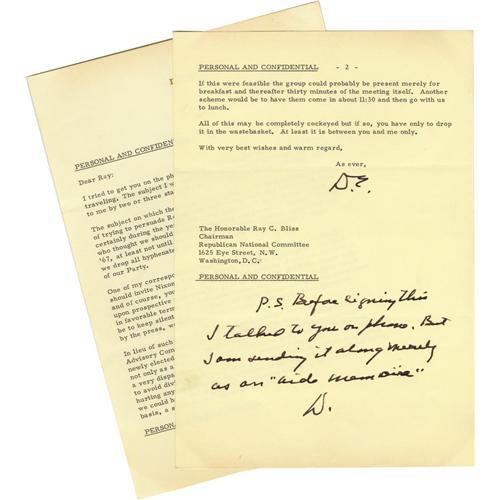 PERSONAL AND CONFIDENTIAL - 2 -
If this were feasible the group could probably be present merely for
breakfast and thereafter thirty minutes of the meeting itself. Another
scheme would be to have them come in about 11:30 and then go with us
to lunch.
All of this may be completely cockeyed but if so, you have only to drop
it in the wastebasket. At least it is between you and me only.
With very best wishes and warm regard,
As ever,
D.E.
The Honorable Ray C. Bliss
Chairman
Republican National Committee
1625 Eye Street, N.W.
Washington, D.C.
PERSONAL AND CONFIDENTIAL
P.S. Before signing this
I talked to you on phone. But
I am sending it along merely
as an "aide memoire"
D.
PERSONAL AND CONFIDE
Dear Ray:
I tried to get you on the ph
traveling. The subject I w
to me by two or three sta
The subject on which the
of trying to persuade Re
certainly during the yea
who thought we should
'67, at least not until
we drop all hyphenate
of our Party.
One of my correspo
should invite Nixon
and of course, you
upon prospective
in favorable term
be to keep silent
by the press, w
In lieu of such
Advisory Com
newly elected
not only as a
a very dispa
to avoid divi
hurting any
we could h
basis, a s
PERSON